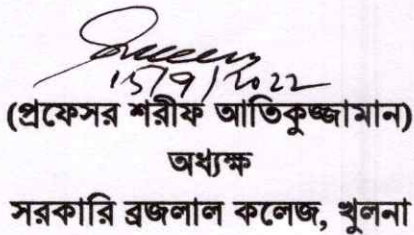 15/9/2022
(প্রফেসর শরীফ আতিকুজ্জামান)
অধ্যক্ষ
সরকারি ব্রজলাল কলেজ, খুলনা